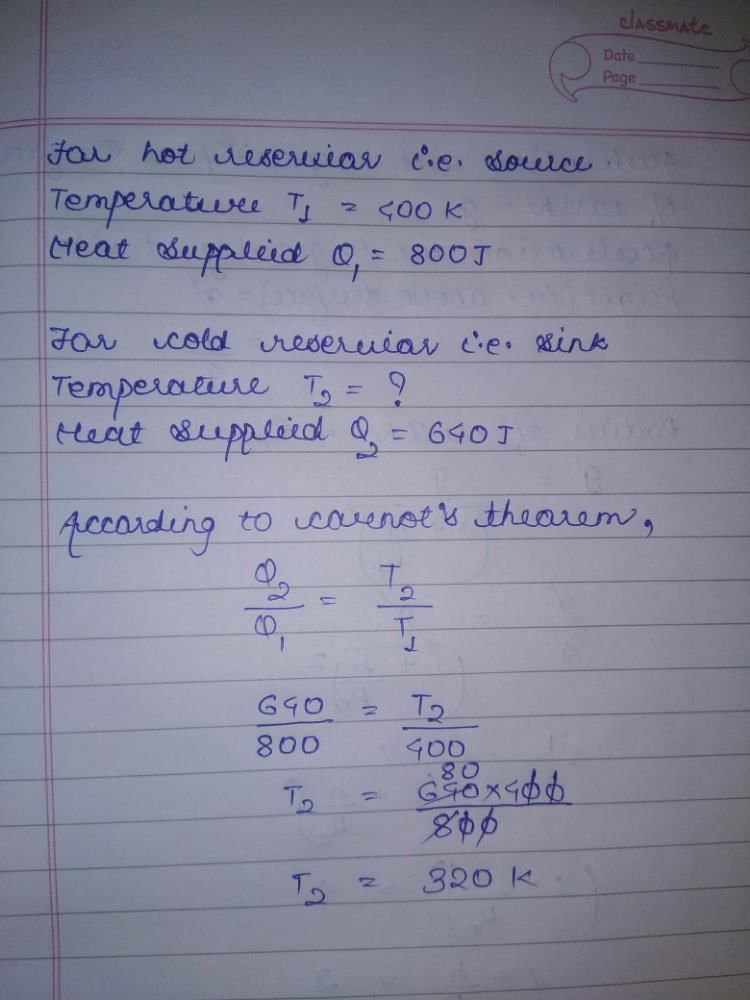 classmate
Date
Page
For hot reservior i.e. source.
Temperature T₁ = 400 K
Heat Supplied Q₁ = 800 J
For cold reservior i.e. sink
Temperature T₂ = ?
Heat Supplied Q₂ = 640 J
According to carnot's theorem,
Q₂/Q₁ = T₂/T₁
640/800 = T₂/400
80
T₂ = 640×400/800
T₂ = 320 K